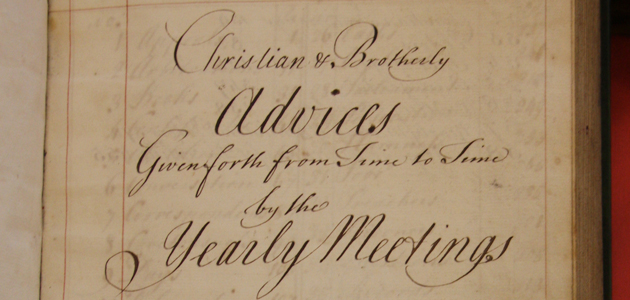 Christian & Brotherly
Advices
Given forth from Time to Time
by the
Yearly Meetings